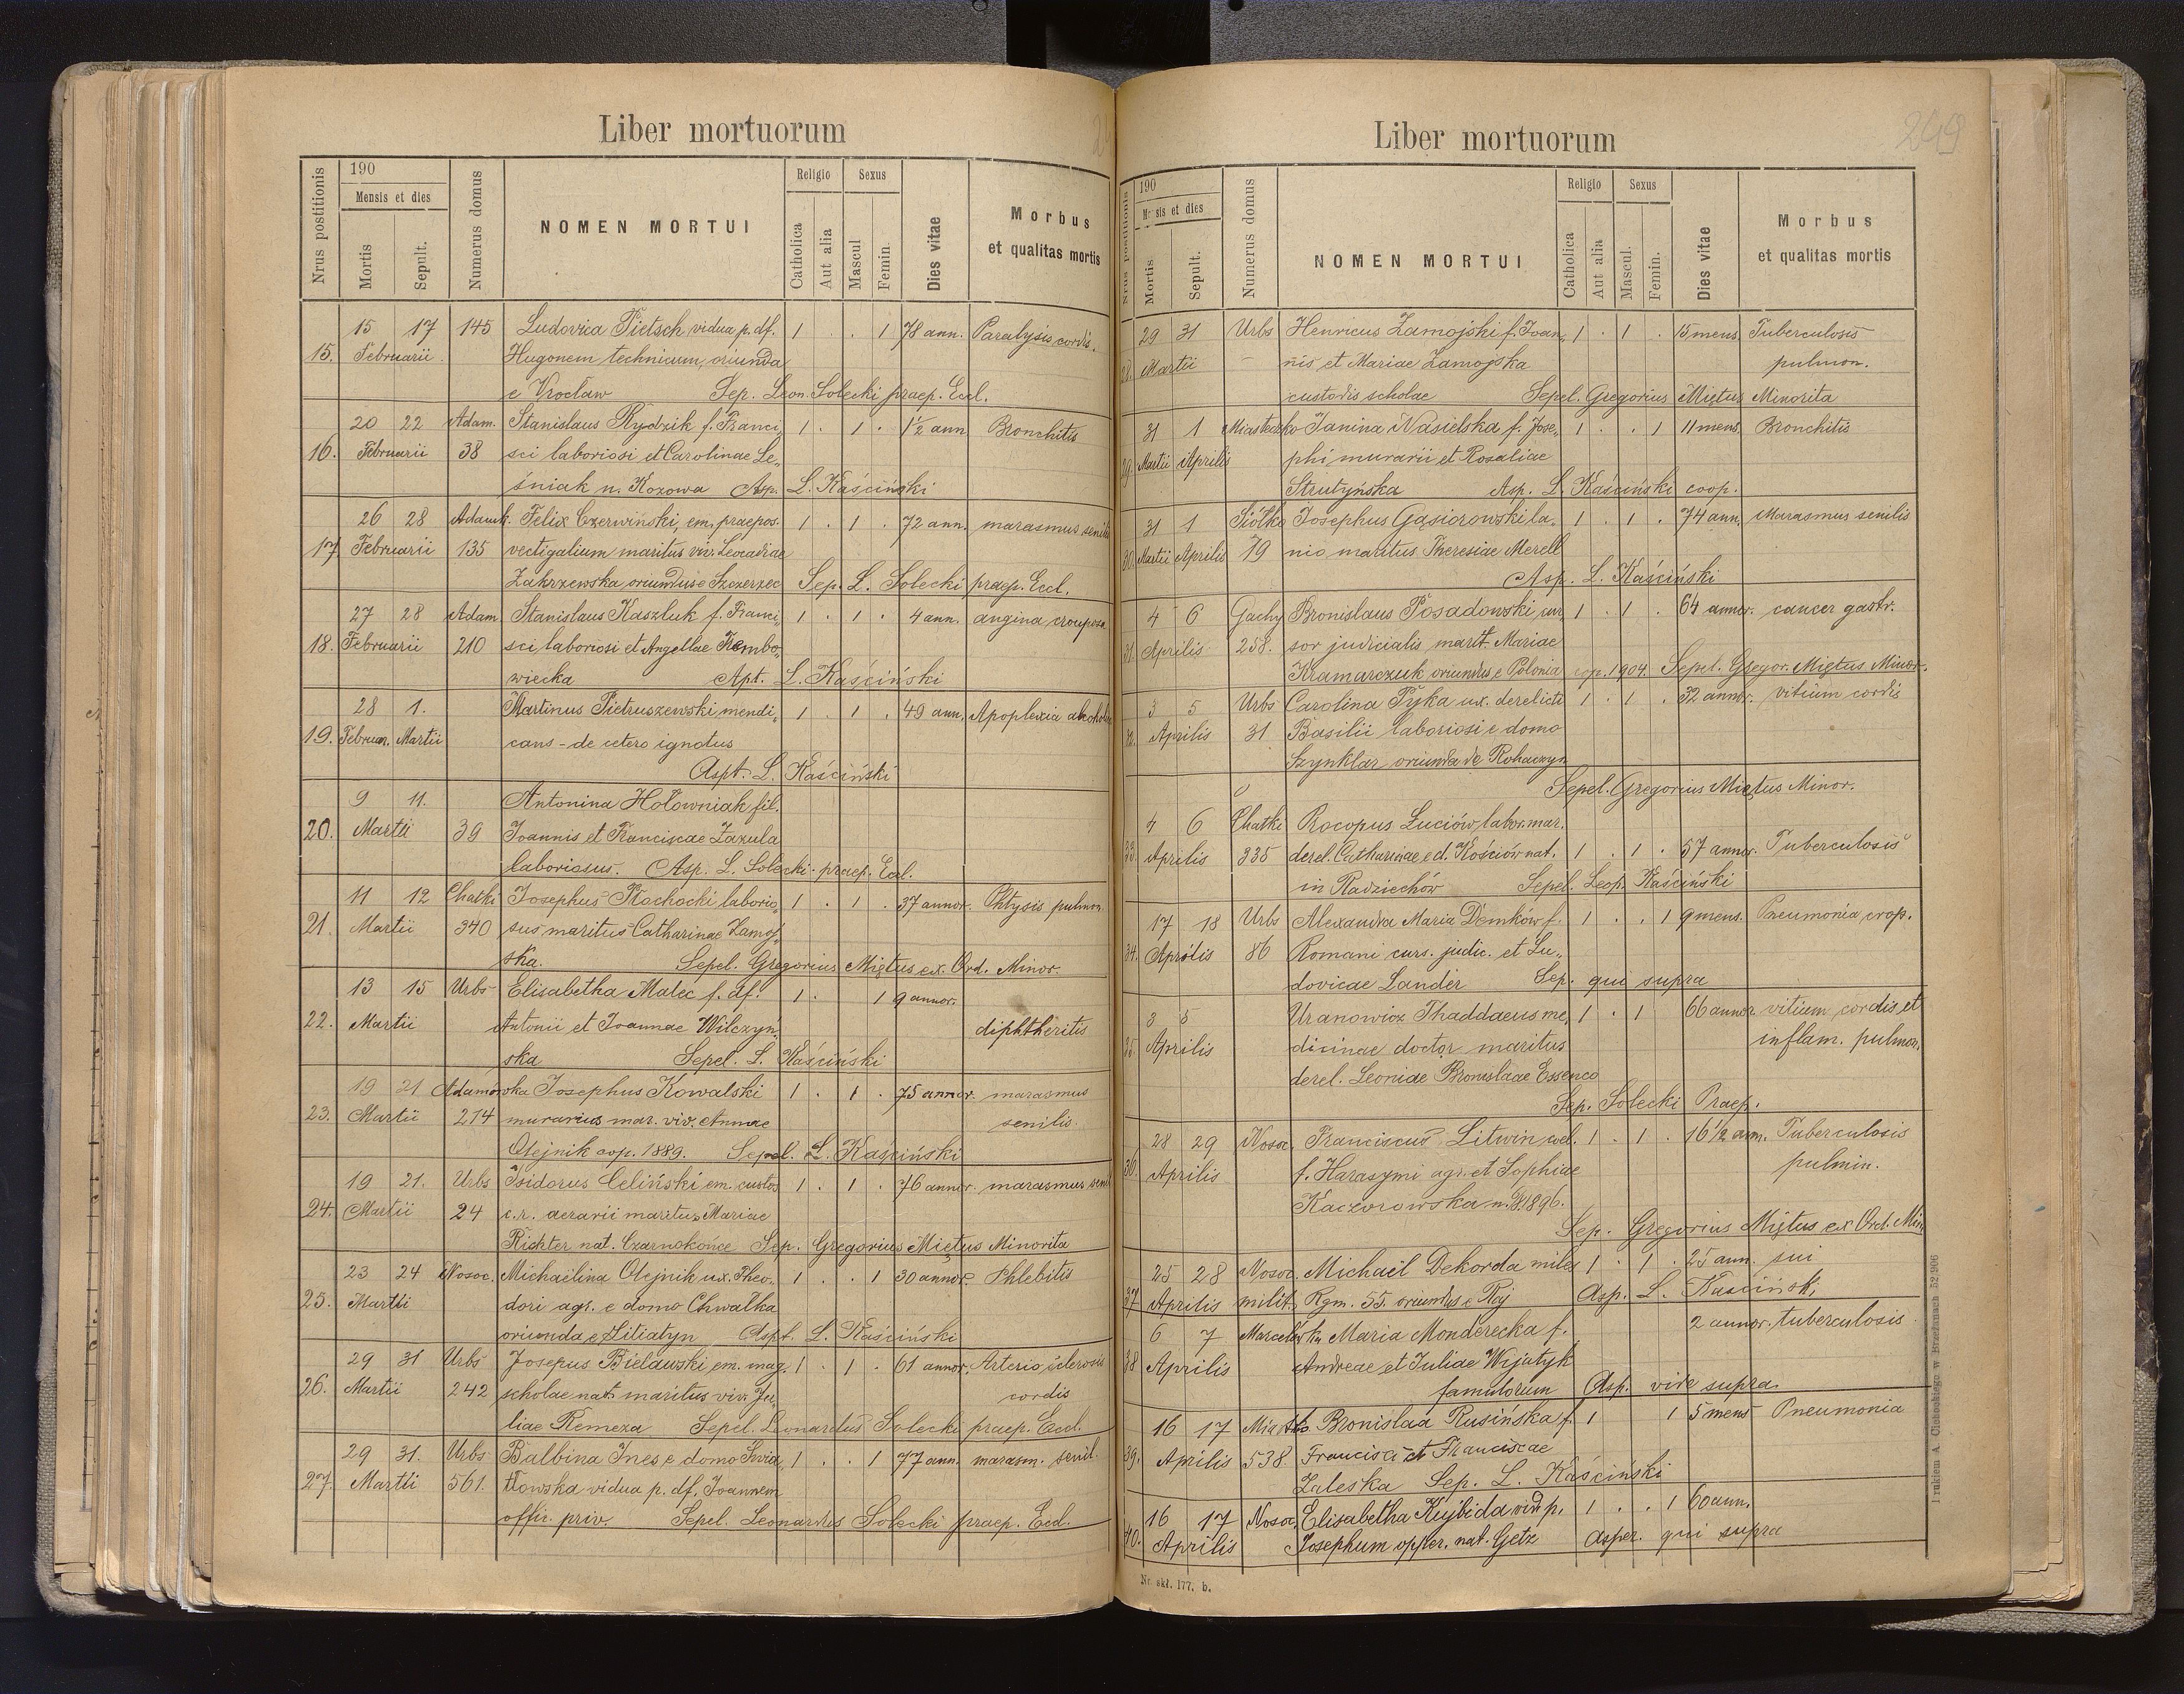 Liber mortuorum
Nrus postitionis
190
Mensis et dies
Mortis
Sepult.
Numerus domus
NOMEN MORTUI
Religio
Catholica
Aut alia
Sexus
Mascul
Femin.
Dies vitae
Morbus
et qualitas mortis
15 17 145 Ludovica Pietsch vidua p. df. 1 . . 1 78 ann. Paralysis cordis.
15. Februarii Hugonem technicum, oriunda
e Vrocław Sep. Leon. Solecki praep. Eccl.
20 22 Adam. Stanislaus Rydzik f. Franci, 1 . 1 . 1½ ann Bronchitis
16. Februarii 38 sci laboriosi et Carolinae Le„
śniak n. Kozowa Asp. L. Kaściński
26 28 Adamk. Felix Czerwiński, em. praepos. 1 . 1 . 72 ann. marasmus senilis
17 Februarii 135 vectigalium maritus viv. Leocadiae
Zakrzewska oriundus e Szczerzec Sep. L. Solecki praep. Eccl.
27 28 Adam Stanislaus Kaszluk f. Franci„ 1 . 1 . 4 ann. angina crouposa
18. Februarii 210 sci laboriosi et Angellae Trembo„
wiecka Apt. L. Kaściński
28 1. Martinus Pietruszewski mendi„ 1 . 1 . 49 ann. Apoplexia
19. Februar. Martii cans - de cetero ignotus
Aspt. L. Kaściński
9 11. Antonina Hołowniak fil.
20. Martii 39 Joannis et Franciscae Zazula
laboriosus. Asp. L. Solecki praep. Ecl.
11 12 Chatki Josephus Kochocki laborio„ 1 . 1 . 37 annor. Phtysis pulmon.
21. Martii 340 sus maritus Catharinae Zamoj„
ska. Sepel. Gregorius Miętus ex. Ord. Minor.
13 15 Urbs Elisabetha Malec f. df. 1 . 1 9 annor.
22. Martii Antonii et Joannae Wilczyń„ diphtheritis
ska Sepel. L. Kaściński
19 21 Adamówka Josephus Kowalski 1 . 1 . 75 annor. marasmus
23. Martii 274 murarius mar. viv. Annae senilis.
Olejnik cop. 1889. Sepel. L. Kaściński
19 21. Urbs Isidorus Celiński em. custos 1 . 1 . 76 annor. marasmus senil
24. Martii 24 c. r. aerarii maritus Mariae
Richter nat. Czarnokońce Sep. Gregorius Miętus Minorita
23 24 Nosoc. Michaëlina Olejnik ux. Theo„ 1 . . 1 30 annor. Phlebitis
25. Martii dori agr. e domo Chwałka
oriunda e Litiatyn Aspt. L. Kaściński
29 31 Urbs Josepus Bielawski em. mag. 1 . 1 . 61 annor. Arterio sclerosis
26. Martii 242 scholae nat. maritus viv. Ju„ cordis
liae Remeza Sepel. Leonardus Solecki praep. Eccl.
29 31. Urbs Balbina Ines e domo Świa„ 1 . . 1 77 ann. marasm. senil.
27. Martii 561. tłowska vidua p. df. Joannem
offic. priv. Sepel. Leonardus Solecki praep. Ecl.
Liber mortuorum
249
Nrus postitionis
190
Mensis et dies
Mortis
Sepult.
Numerus domus
NOMEN MORTUI
Religio
Catholica
Aut alia
Sexus
Mascul.
Femin.
Dies vitae
Morbus
et qualitas mortis
29 31 Urbs Henricus Zamojski f. Joan„ 1 . 1 . 15 mens. Tuberculosis
28. Martii nis et Mariae Zamojska pulmon.
custodis scholae Sepel. Gregorius Miętus Minorita
31 1 Miasteczko Janina Nasielska f. Jose„ 1 . . 1 11 mens. Bronchitis
29. Martii Aprilis phi murarii et Rosaliae
Strutyńska Asp. L. Kaściński coop.
31 1 Siółko Josephus Gąsiorowski la. 1 . 1 . 74 ann. Marasmus senilis
30. Martii Aprilis 79 nio maritus Theresiae Merell
Asp. L. Kaściński
4 6 Gachy Bronislaus Posadowski cur 1 . 1 . 64 annor. cancer gastr.
31. Aprilis 258. sor judicialis marit. Mariae
Kramarczuk oriundus e Polonia cop. 1904. Sepel. Gregor. Miętus Minor.
3 5 Urbs Carolina Pyka ux. derelicti 1 . 1 . 32 annor. vitium cordis
32. Aprilis 31 Basilii laboriosi e domo
Szynklar oriunda de Rohaczyn
Sepel. Gregorius Miętus Minor.
4 6 Chatki Procopus Luciów labor. mar.
33. Aprilis 335 derel. Catharinae e d. Kościów nat. 1 . 1 . 57 annor. Tuberculosis
in Radziechów Sepel. Leop. Kaściński
17 18 Urbs Alexandra Maria Demków f. 1 . . 1 9 mens. Pneumonia crop.
34. Aprilis 86 Romani curs. judic. et Lu„
dovicae Lander Sep. qui supra
3 5 Uranowicz Thaddaeus me„ 1 . 1 66 annor vitium cordis et
35. Aprilis dicinae doctor maritus inflam. pulmon.
derel. Leoniae Bronislaae Essenco
Sep. Solecki Praep.
28 29 Nosoc. Franciscus Litwin coel. 1 . 1 . 16 ½ ann. Tuberculosis
36. Aprilis f. Harasymi agr. et Sophiae pulmin.
Kaczorowska n. 1896.
Sep. Gregorius Miętus ex Ord. Min
25 28 Nosoc. Michaël Dekorda miles 1 . 1 . 25 ann. sui
37 Aprilis milit. Rgm. 55. oriundus e Roj Asp. L. Kaściński
6 7 Marcelówka Maria Monderecka f. 2 annor. tuberculosis
38 Aprilis Andreae et Juliae Wijatyk
famulorum Asp. vide supra.
16 17 Miasto Bronislaa Rusińska f. 1 1 5 mens Pneumonia
39. Aprilis 538 Francisci et Franciscae
Zaleska Sep. L. Kaściński
16 17 Nosoc. Elisabetha Kujbida vid. p. 1 . . 1 60 ann.
40. Aprilis Josephum opfer. nat. Getz Asper. qui supra
Nr. skł. 177. b.
Drukiem A. Głębockiego w Brzeżanach 52/906